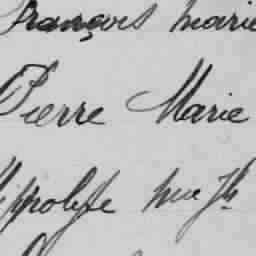 François Marie
Pierre Marie
Hippolyte